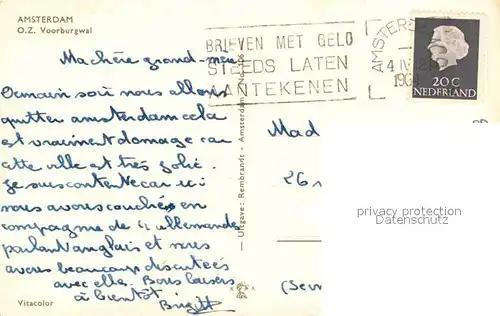 AMSTERDAM
O.Z. Voorburgwal
BRIEVEN MET GELD
STEEDS LATEN
AANTEKENEN
AMSTERDAM
20 C
NEDERLAND
Ma chère grand-mère
Demain soir nous allons
quitter amsterdam cela
est vraiment domage car
cette ville est très jolie.
Je suis contente car ici
nous avons couchées en
compagnie de 4 allemandes
parlant anglais et nous
avons beaucoup discutées
avec elle. Bons baisers
à bientôt
Brigitt
Uitgave: Rembrandt - Amsterdam
Mad
26
privacy protection
Datenschutz
Vitacolor